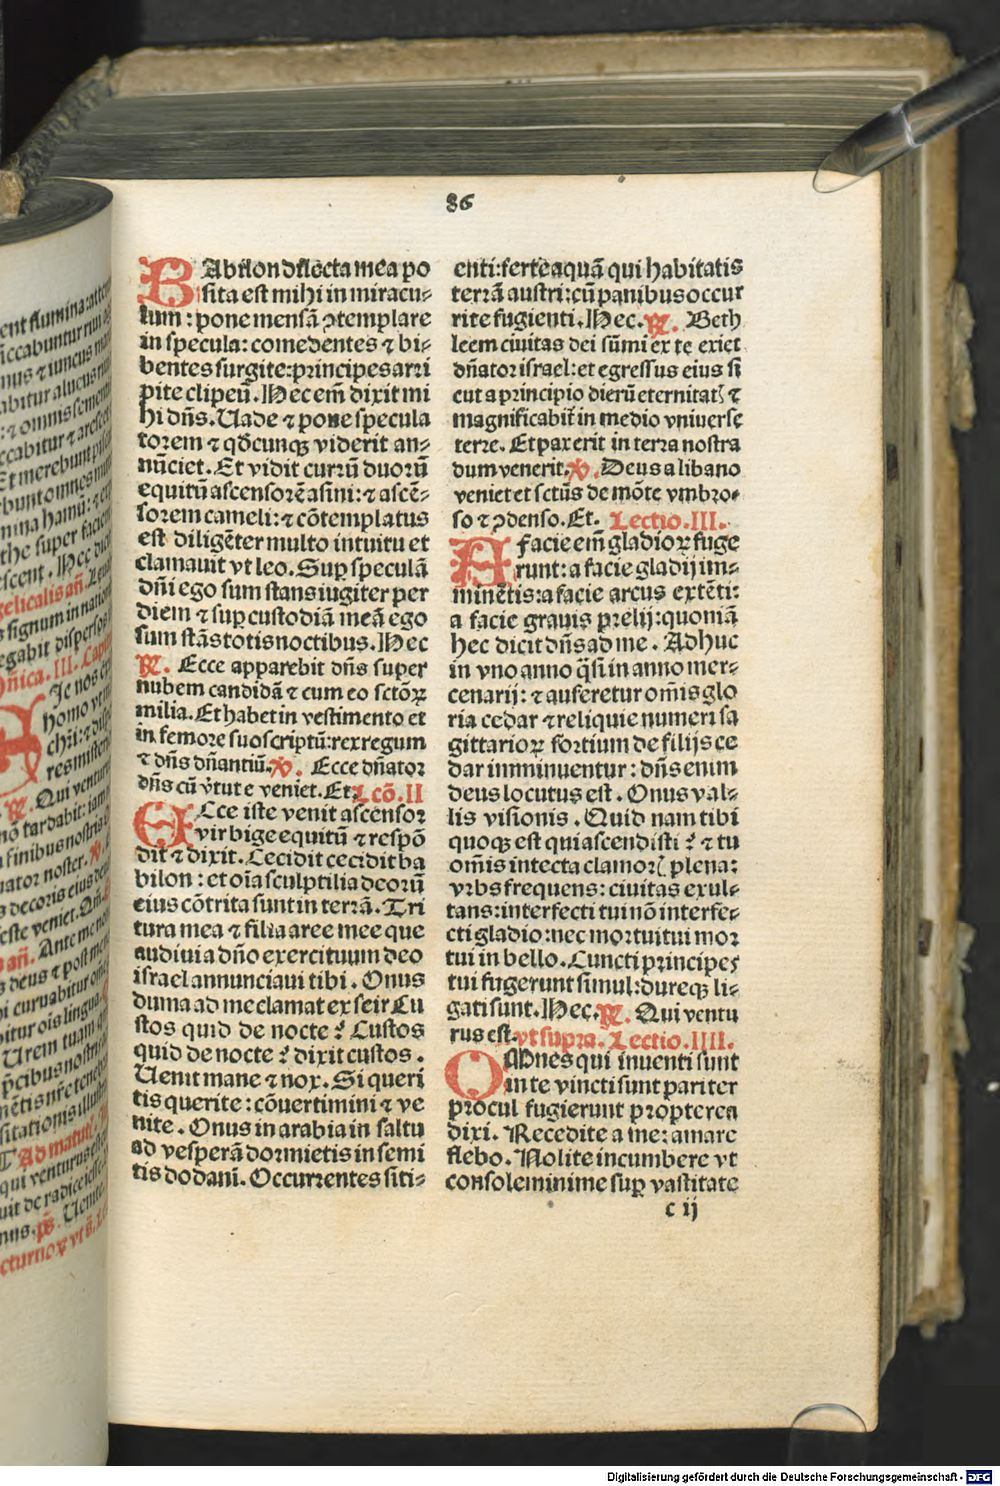 86
BAbilon dilecta mea po
sita est mihi in miracu⸗
lum : pone mensã ꝯtemplare
in specula: comedentes ⁊ bi⸗
bentes surgite:principes arri
pite clipeũ. Hec em̃ dixit mi
hi dñs. Uade ⁊ pone specula
torem ⁊ qđcunqꝫ viderit an⸗
nũciet. Et vidit currũ duorũ
equitũ ascensorẽ asini: ⁊ ascẽ⸗
sorem cameli: ⁊ cõtemplatus
est diligẽter multo intuitu et
clamauit vt leo. Suꝑ speculã
dñi ego sum stans iugiter per
diem ⁊ suꝑ custodiã meã ego
sum stãs totis noctibus. Hec
℟. Ecce apparebit dñs super
nubem candidã ⁊ cum eo sctõꝝ
milia. Et habet in vestimento et
in femore suo scriptũ:rex regum
⁊ dñs dñantiũ. ℣. Ecce dñator
dñs cũ v̉tute veniet. Et. Lcõ. II
ECce iste venit ascensor
vir bige equitũ ⁊ respõ
dit ⁊ dixit. Cecidit cecidit ba
bilon : et oĩa sculptilia deorũ
eius cõtrita sunt in terrã. Tri
tura mea ⁊ filia aree mee que
audiui a dño exercituum deo
israel annunciaui tibi . Onus
duma ad me clamat ex seir Cu
stos quid de nocte ? Custos
quid de nocte ? dixit custos .
Uenit mane ⁊ nox. Si queri
tis querite : cõuertimini ⁊ ve
nite . Onus in arabia in saltu
ad vesperã dormietis in semi
tis dodani. Occurrentes siti⸗
enti:ferte aquã qui habitatis
terrã austri:cũ panibus occur
rite fugienti. Hec. ℟. Beth
leem ciuitas dei sũmi ex te exiet
dñator israel: et egressus eius si
cut a principio dierũ eternitatꝭ ⁊
magnificabit̃ in medio vniuerse
terre. Et pax erit in terra nostra
dum venerit. ℣. Deus a libano
veniet et sctũs de mõte vmbro⸗
so ⁊ ꝯdenso. Et. Lectio. III.
A facie em̃ gladioꝝ fuge
runt: a facie gladij im⸗
minẽtis: a facie arcus extẽti:
a facie grauis prelij: quoniã
hec dicit dñs ad me . Adhuc
in vno anno q̃si in anno mer⸗
cenarij: ⁊ auferetur om̃is glo
ria cedar ⁊ reliquie numeri sa
gittarioꝝ fortium de filijs ce
dar imminuentur : dñs enim
deus locutus est . Onus val⸗
lis visionis . Quid nam tibi
quoqꝫ est quia scendisti ? ⁊ tu
om̃is in tecta clamorꝭ plena:
vrbs frequens: ciuitas exul⸗
tans: interfecti tui nõ interfe⸗
cti gladio:nec mortui tui mor
tui in bello. Cuncti principes
tui fugerunt simul: dureqꝫ li⸗
gati sunt. Hec. ℟. Qui ventu
rus est. vt supra. Lectio. IIII.
OMnes qui inuenti sunt
in te vincti sunt pariter
procul fugierunt propterea
dixi . Recedite a me: amare
flebo. Nolite incumbere vt
consolemini me suꝑ vastitate
c ij
Digitalisierung gefördert durch die Deutsche Forschungsgemeinschaft - DFG